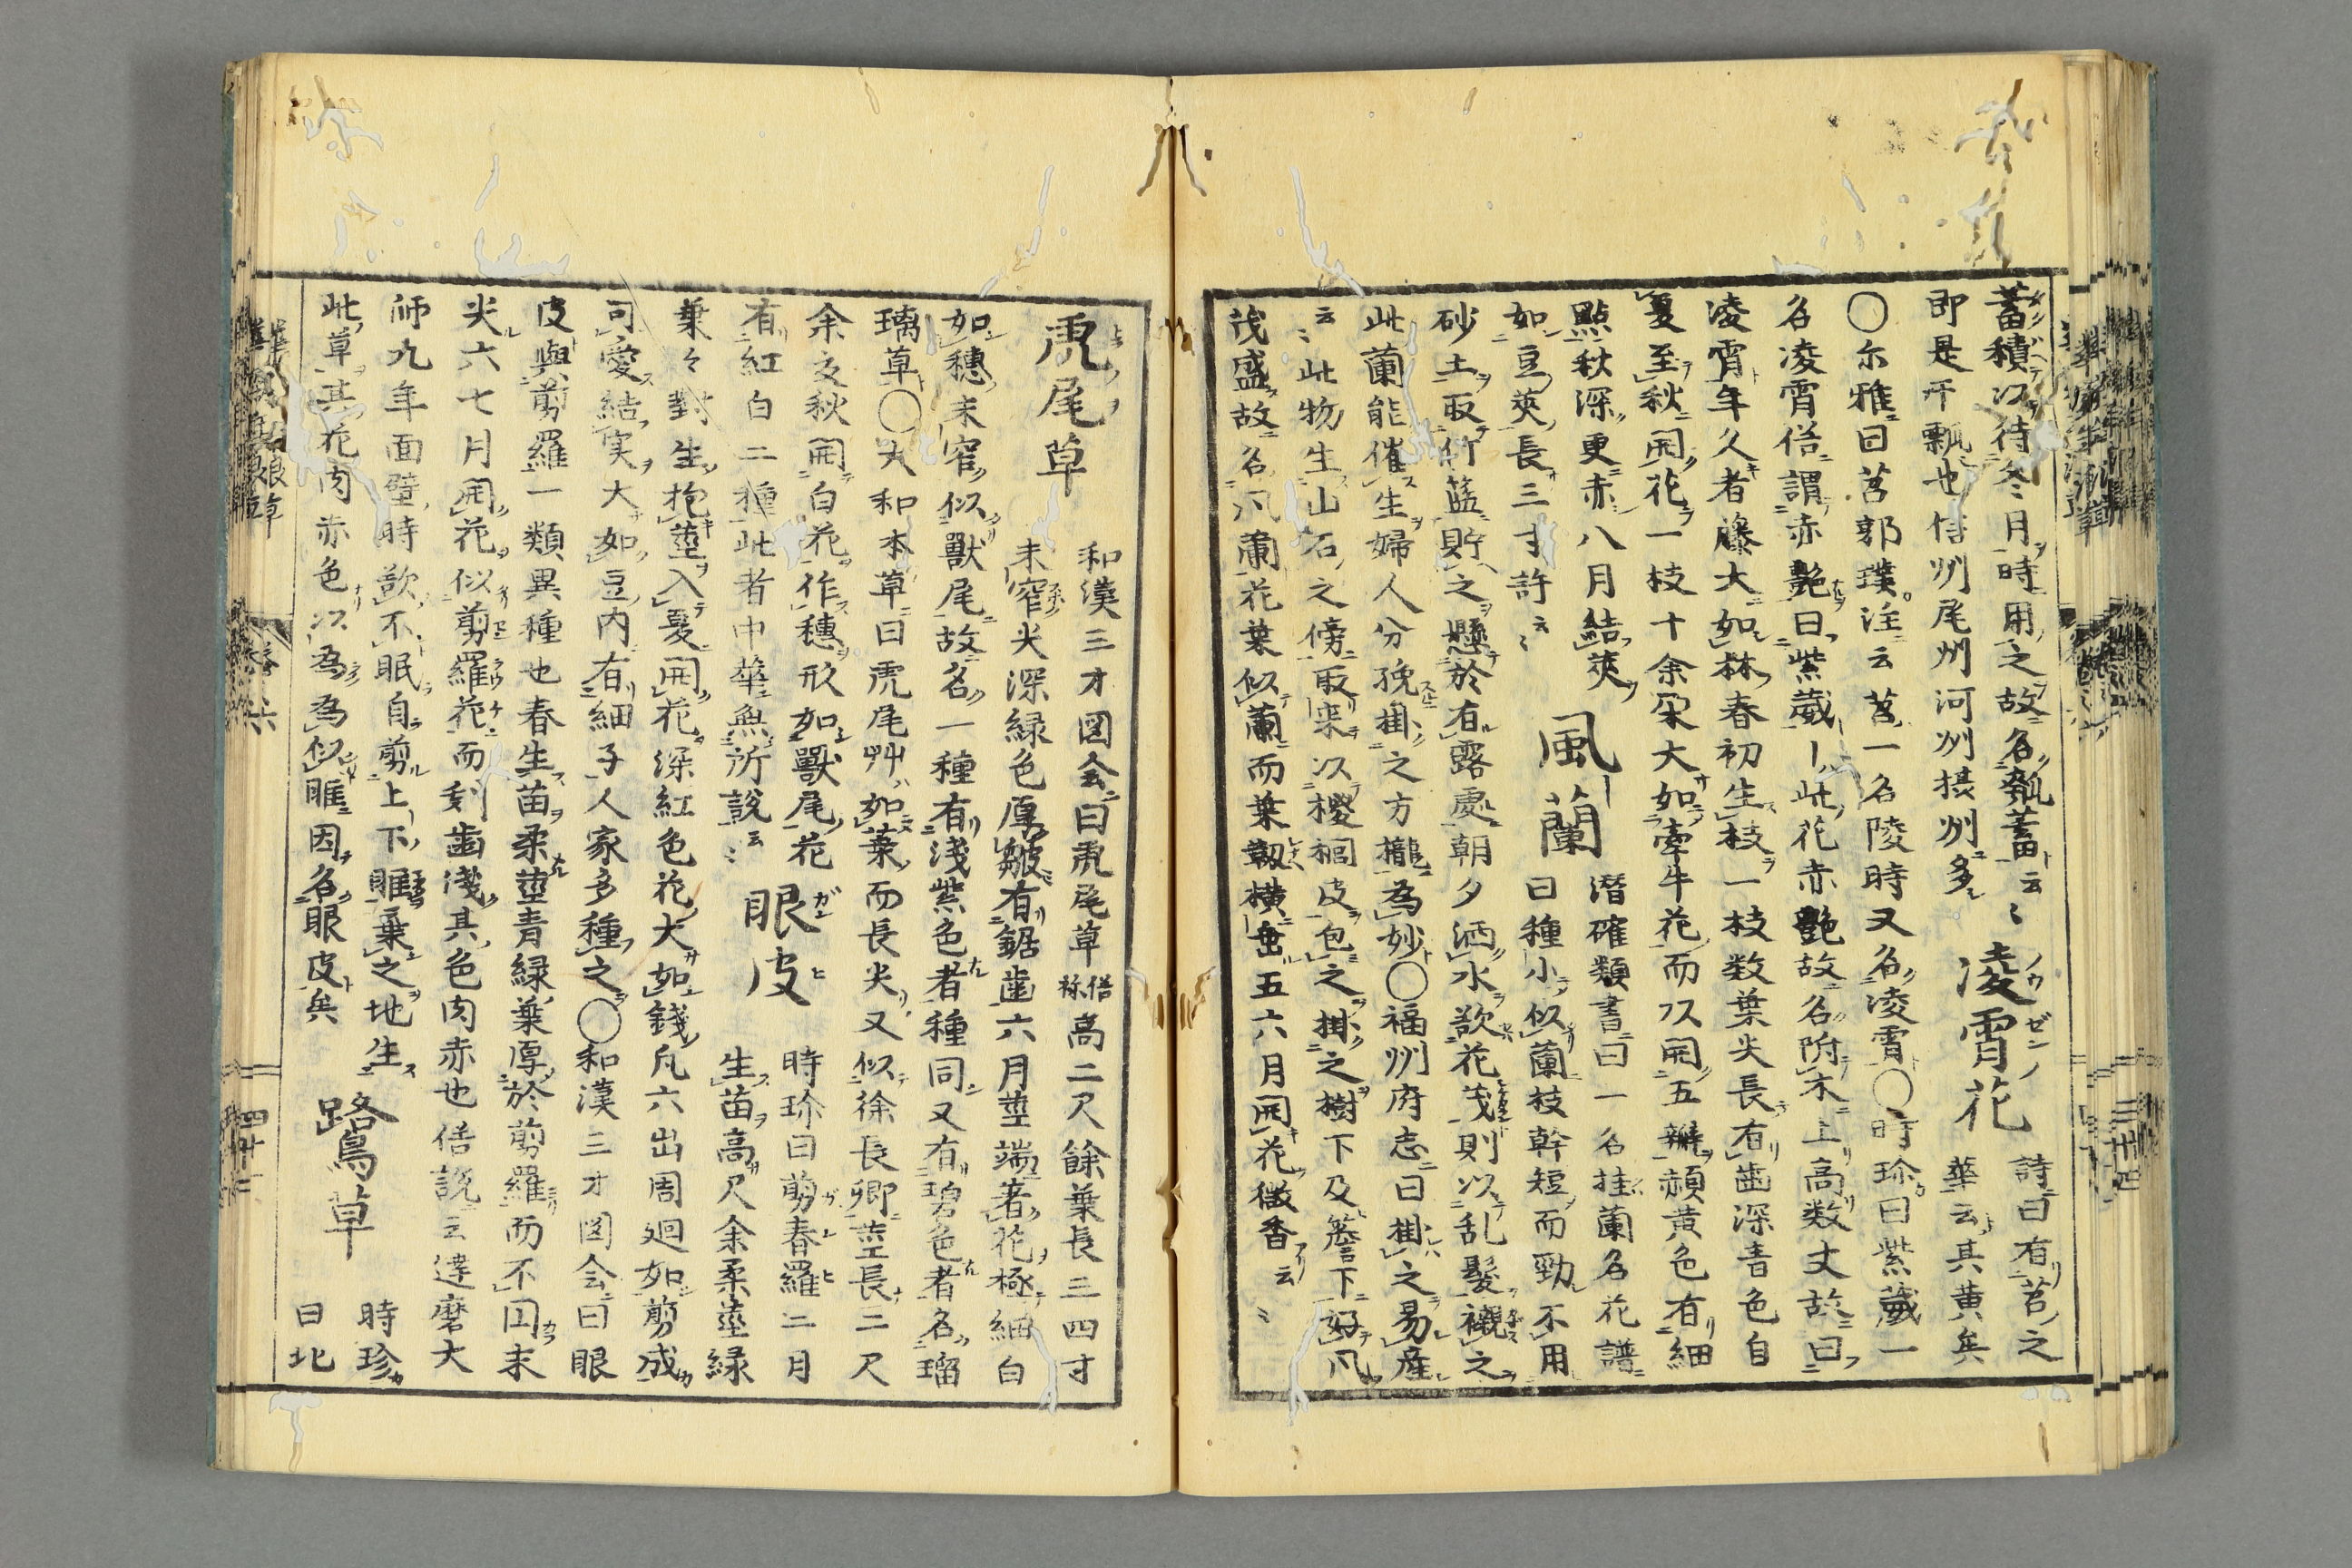 蓄積以待冬月時用之故名瓠蓄云〻
凌霄花
詩曰有苕之
華云其黄矣
即是干瓢也信州尾州河州摂州多
〇尓雅曰苕郭璞注云苕一名陵時又名凌霄〇時珍曰紫葳一
名凌霄俗謂赤艶曰紫葳此花赤艶故名附木上高数丈故曰
凌霄年久者藤大如杯春初生枝一枝数葉尖長有歯深青色自
夏至秋開花一枝十余朶大如牽牛花而頭開五瓣赭黄色有細
點秋深更赤八月結莢
如豆莢長三寸許云〻
風蘭
潜確類書曰一名挂蘭名花譜
曰種小似蘭枝幹短而勁不用
砂土取竹籃貯之懸於有露處朝夕洒水欲花茂則以乱髪襯之
此蘭能催生婦人分娩掛之方櫳為妙〇福州府志曰掛之易産
云〻此物生山石之傍取来以椶梠皮包之掛之樹下及簷下好風
茂盛故名風蘭花葉似蘭而葉靱横岳五六月開花微香云〻
虎尾草
和漢三才図会曰虎尾草俗称高二尺餘葉長三四寸
末窄尖深緑色厚皺有鋸歯六月莖端著花極細白
如穂末窄似獣尾故名一種有浅紫色者種同又有碧色者名瑠
璃草〇大和本草曰虎尾艸如葉而長尖又似徐長卿莖長三尺
余夏秋開白花作穂形如獣尾花
有紅白二種此者中華無所説云〻
眼皮
時珍曰剪春羅二月
生苗高尺余柔莖緑
葉々對生抱莖入夏開花深紅色花大如錢凡六出周廻如剪成
可愛結実大如豆内有細子人家多種之〇和漢三才図会曰眼
皮與剪羅一類異種也春生苗柔莖青緑葉厚於剪羅而不団末
尖六七月開花似剪羅花而刻歯浅其色肉赤也俗説云達磨大
師九年面壁時欲不眠自剪上下眶棄之地生
此草其花肉赤色以為為似眶因名眼皮矣
鷺草
時珍
曰北
巻六